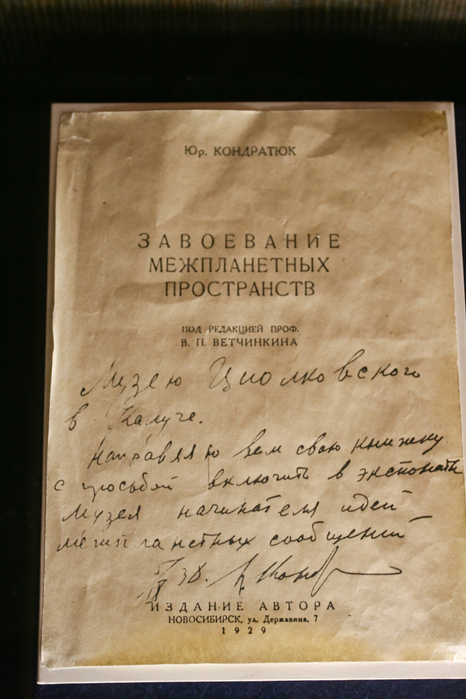 Юр. КОНДРАТЮК
ЗАВОЕВАНИЕ
МЕЖПЛАНЕТНЫХ
ПРОСТРАНСТВ
ПОД РЕДАКЦИЕЙ ПРОФ.
В. П. ВЕТЧИНКИНА
Музею Циолковского
в Калуге.
Направляю Вам свою книжку
с просьбой включить в экспонаты
Музея начинателя идей
межпланетных сообщений
ИЗДАНИЕ АВТОРА
НОВОСИБИРСК, ул. Державина, 7
1929